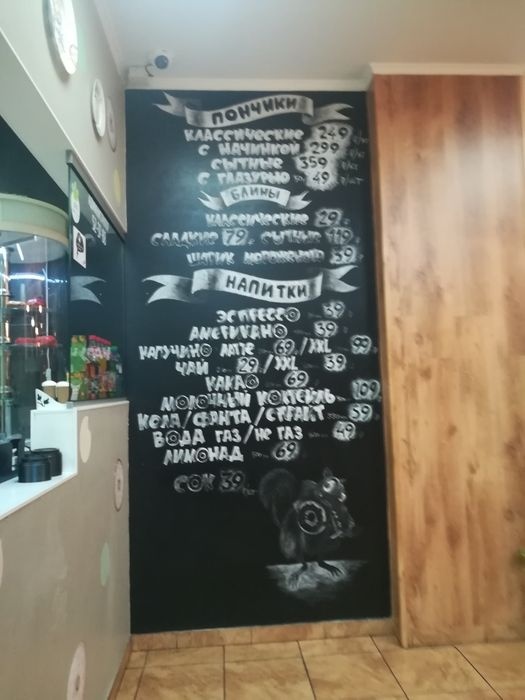 ПОНЧИКИ
КЛАССИЧЕСКИЕ 249
С НАЧИНКОЙ 299
СЫТНЫЕ 359
С ГЛАЗУРЬЮ 49
БЛИНЫ
КЛАССИЧЕСКИЕ 29
СЛАДКИЕ 79 СЫТНЫЕ 119
ШАРИК МОРОЖЕНОГО 39
НАПИТКИ
ЭСПРЕССО 39
АМЕРИКАНО 39
КАПУЧИНО ЛАТЕ 69/XXL 99
ЧАЙ 29/XXL 39
КАКАО 69
МОЛОЧНЫЙ КОКТЕЙЛЬ 109
КОЛА/ФАНТА/СПРАЙТ 59
ВОДА ГАЗ/НЕ ГАЗ 49
ЛИМОНАД 69
СОК 39